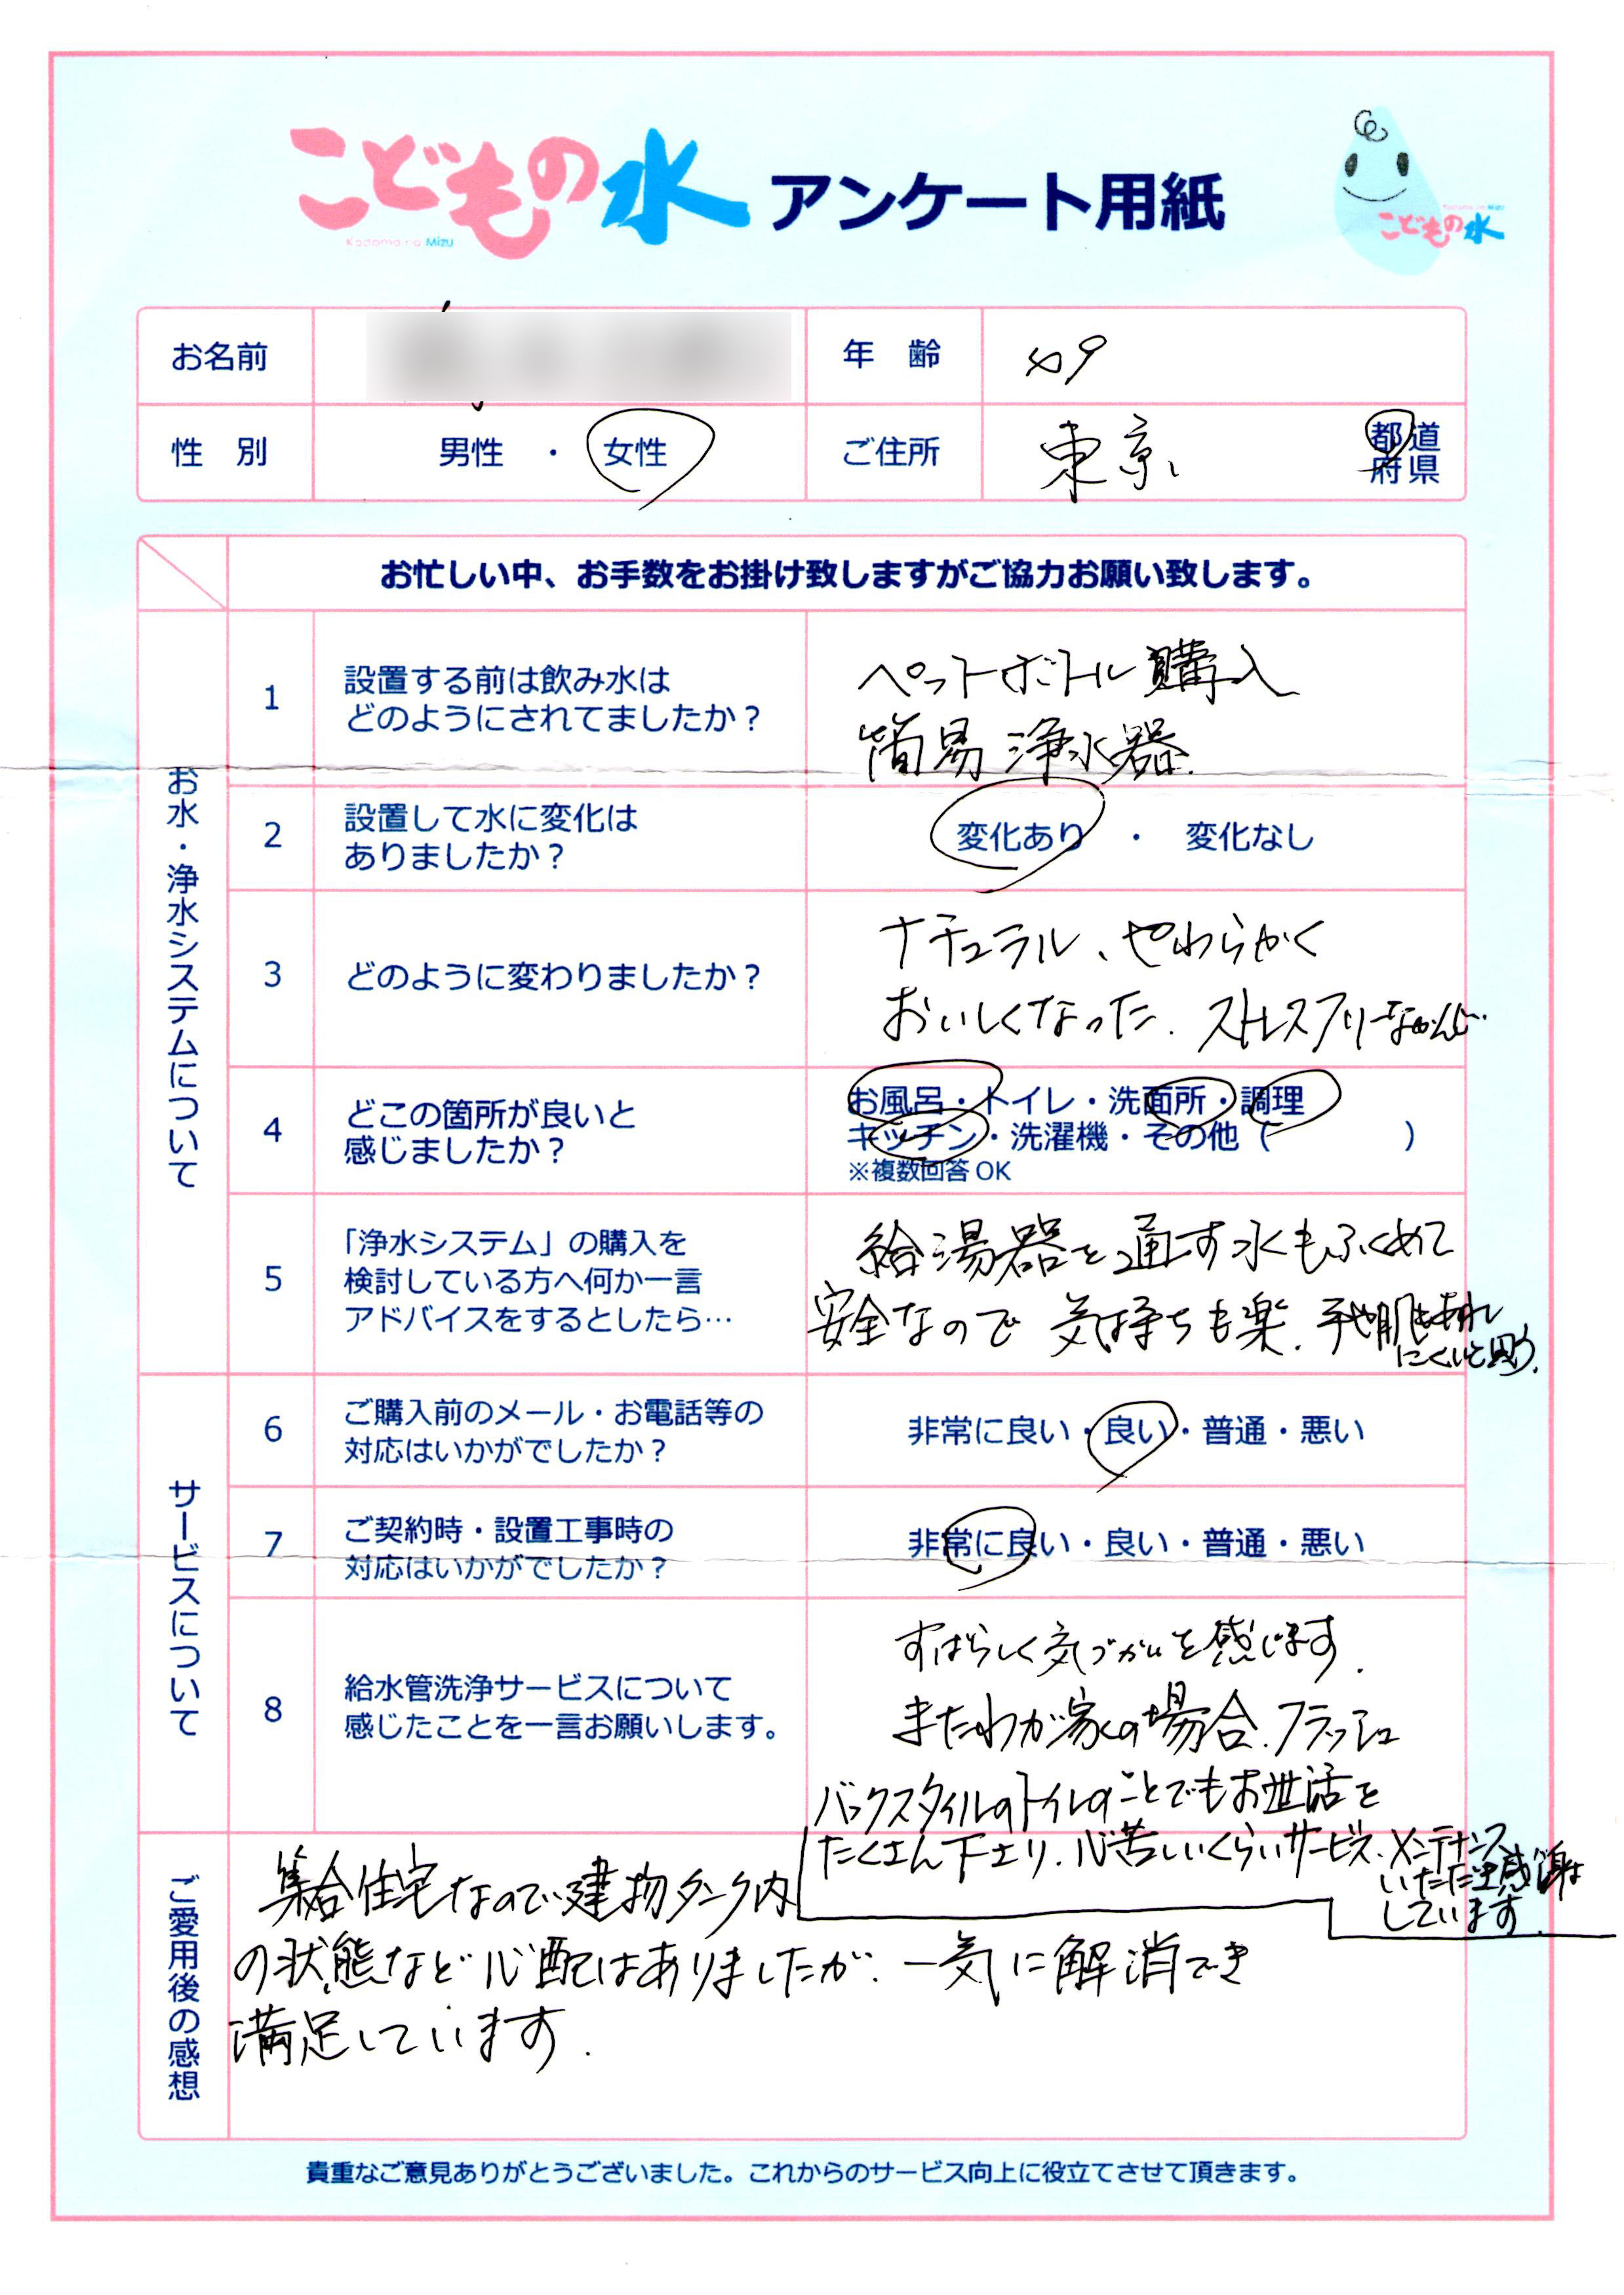 こどもの水 アンケート用紙
Kodomo no Mizu
Kodomo no Mizu
こどもの水
お名前
年 齢 49
性 別 男性 ・ 女性
ご住所 東京 都道府県
お忙しい中、お手数をお掛け致しますがご協力お願い致します。
お水・浄水システムについて
1 設置する前は飲み水は
どのようにされてましたか？
ペットボトル購入
簡易浄水器.
2 設置して水に変化は
ありましたか？
変化あり ・ 変化なし
3 どのように変わりましたか？
ナチュラル、やわらかく
おいしくなった. ストレスフリーなかんじ…
4 どこの箇所が良いと
感じましたか？
お風呂・トイレ・洗面所・調理
キッチン・洗濯機・その他（ ）
※複数回答 OK
5 「浄水システム」の購入を
検討している方へ何か一言
アドバイスをするとしたら…
給湯器を通す水もふくめて
安全なので 気持ちも楽. 手や肌もあれ
にくいと思う.
サービスについて
6 ご購入前のメール・お電話等の
対応はいかがでしたか？
非常に良い・良い・普通・悪い
7 ご契約時・設置工事時の
対応はいかがでしたか？
非常に良い・良い・普通・悪い
8 給水管洗浄サービスについて
感じたことを一言お願いします。
すばらしく気づかいを感じます.
またわが家の場合. フラッシュ
バックスタイルのトイレのことでもお世話を
たくさん下さり. 心苦しいくらいサービス、メンテナンス
いただき感謝
しています.
ご愛用後の感想
集合住宅なので建物タンク内
の状態など心配はありましたが. 一気に解消でき
満足しています.
貴重なご意見ありがとうございました。これからのサービス向上に役立てさせて頂きます。